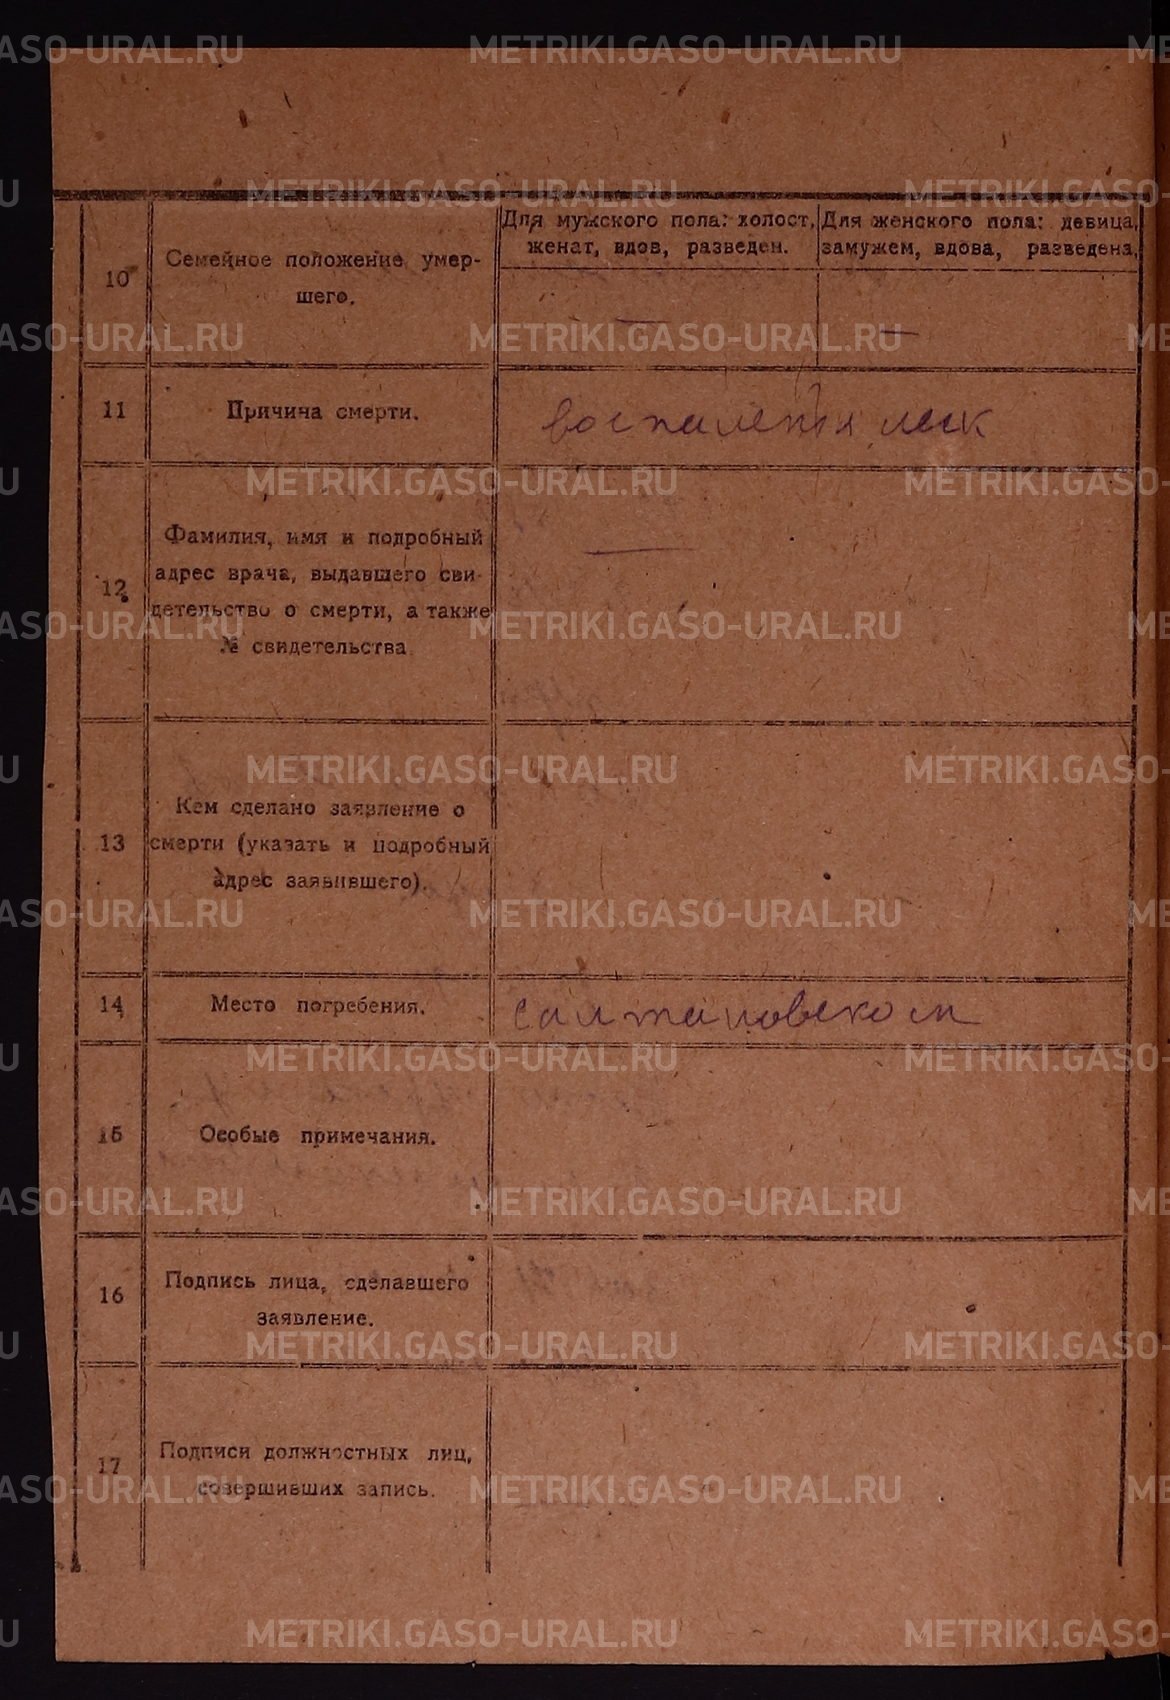 Для мужского пола: холост,
женат, вдов, разведен.
Для женского пола: девица,
замужем, вдова, разведена,
10
Семейное положение умер-
шего.
—
—
11
Причина смерти.
воспаления легк
12
Фамилия, имя и подробный
адрес врача, выдавшего сви-
детельство о смерти, а также
№ свидетельства
—
13
Кем сделано заявление о
смерти (указать и подробный
адрес заявившего).
14
Место погребения.
салтановском
15
Особые примечания.
16
Подпись лица, сделавшего
заявление.
17
Подписи должностных лиц,
совершивших запись.
METRIKI.GASO-URAL.RU